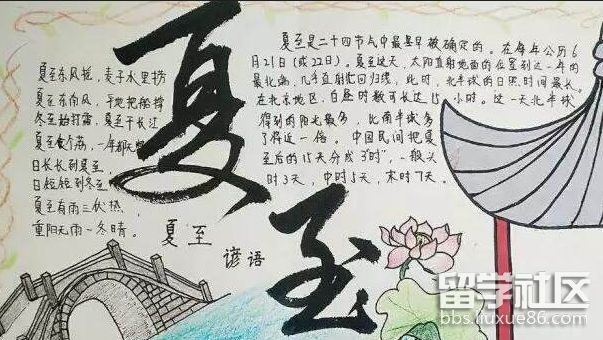 夏至
夏至东风摇,麦子水里捞
夏至东南风,平地把船撑
冬至始打霜,夏至干长江
日长长到夏至,
日短短到冬至
夏至有雨三伏热,
重阳无雨一冬晴。
夏至
谚语
夏至是二十四节气中最早被确定的。在每年公历6
月21日(或22日)。夏至这天,太阳直射地面的位置到达一年的
最北端,几乎直射北回归线,此时,北半球的日照时间最长。
在北京地区,白昼时数可长达15小时。这一天北半球
得到的阳光最多,比南半球多
了将近一倍。中国民间把夏
至后的15天分成3"时",一般头
时3天,中时5天,末时7天。
留学社区
bbs.liuxue86.com